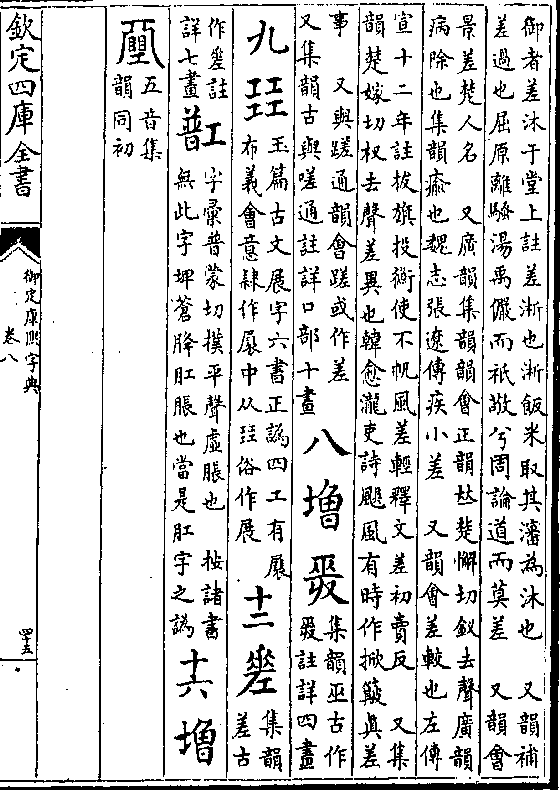 御者差沐于堂上註差淅也淅飯米取其潘為沐也 又韻補
差過也屈原離騷湯禹儼而祗敬兮周論道而莫差 又韻會
景差楚人名 又廣韻集韻韻會正韻𠀤楚懈切釵去聲廣韻
病除也集韻瘉也魏志張遼傳疾小差 又韻會差較也左傳
宣十二年註拔旗投衡使不帆風差輕釋文差初賣反 又集
韻楚嫁切杈去聲差異也韓愈瀧吏詩颶風有時作掀簸真差
事 又與蹉通韻會蹉或作差
又集韻古與嗟通註詳口部十畫
八 增
集韻巫古作
註詳四畫
九 㠭
玉篇古文展字六書正譌四工有㞡
布義會意隸作㞡中从㠭俗作展
十二
集韻
差古
作 註
詳七畫
字彙普蒙切撲平聲虛脹也 按諸書
無此字埤蒼胮肛脹也當是肛字之譌
十六 增
五音集
韻同初
欽定四庫全書
御定康熙字典
卷八
四十五